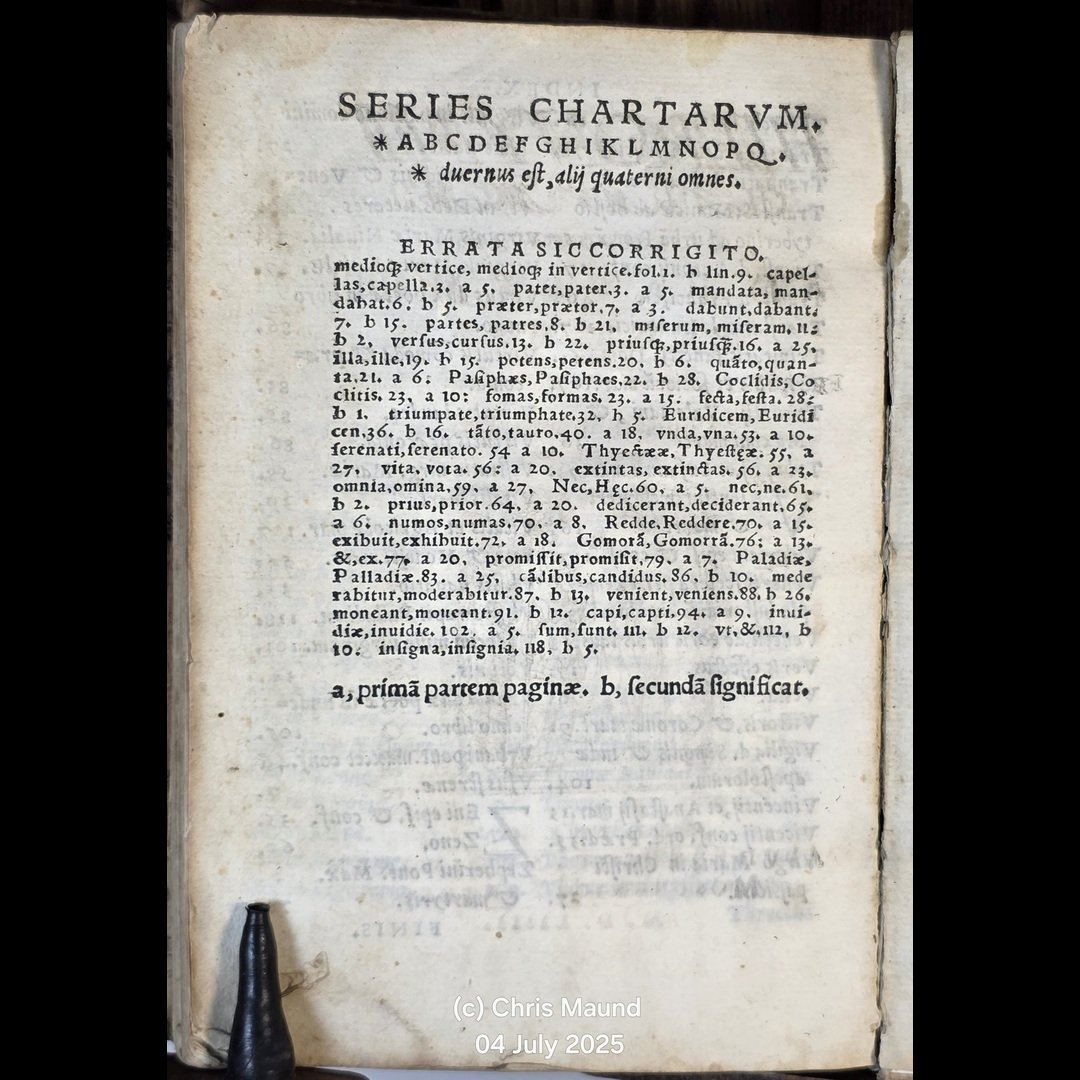 SERIES CHARTARVM.
* A B C D E F G H I K L M N O P Q.
* duernus eſt, alij quaterni omnes.
ERRATA SIC CORRIGITO.
medioq; vertice, medioq; in vertice.fol.1. b lin.9. capel-
las,capella.3. a 5. patet,pater.3. a 5. mandata, man-
dabat.6. b 5. præter,prætor.7. a 3. dabunt,dabant.
7. b 15. partes, patres.8. b 21. miſerum, miſeram. 11.
b 2. verſus,curſus.13. b 22. priuſq;,priuſq̃.16. a 25.
illa,ille.19. b 15. potens,petens.20. b 6. quãto,quan-
ta.21. a 6. Paſiphæs,Paſiphaes.22. b 28. Coclidis,Co
clitis. 23. a 10: fomas,formas. 23. a 15. fecta,feſta. 28:
b 1. triumpate,triumphate.32. b 5. Euridicem,Euridi
cen.36. b 16. tãto,tauro.40. a 18. vnda,vna.53. a 10.
ſerenati,ſerenato. 54 a 10. Thyeſtææ,Thyeſtęæ. 55. a
27. vita, vota. 56: a 20. extintas, extinctas. 56. a 23.
omnia,omina.59. a 27. Nec,Hęc.60. a 5. nec,ne.61.
b 2. prius,prior.64. a 20. dedicerant,deciderant.65.
a 6. numos,numas.70. a 8. Redde,Reddere.70. a 15.
exibuit,exhibuit.72. a 18. Gomorã,Gomorrã.76; a 13.
&,ex.77. a 20. promiſſit,promiſit.79. a 7. Paladiæ,
Palladiæ.83. a 25. cãdibus,candidus. 86. b 10. mede
rabitur,moderabitur.87. b 13. venient,veniens.88. b 26.
moneant,moueant.91. b 12. capi,capti.94. a 9. inui-
diæ,inuidie. 102. a 5. ſum,ſunt. 111. b 12. vt,&.112. b
10: inſigna,inſignia. 118. b 5.
a, primã partem paginæ. b, ſecundã ſignificat.
(c) Chris Maund
04 July 2025